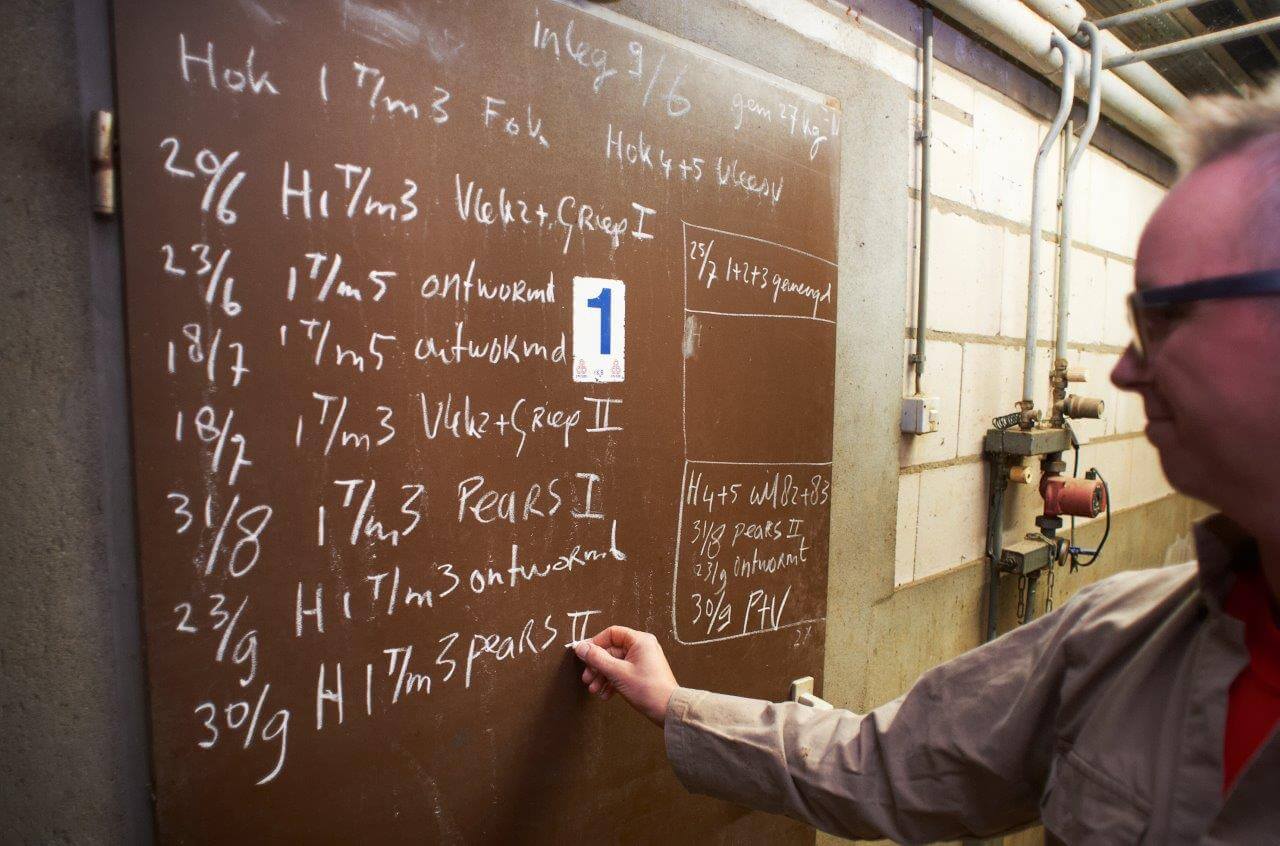 inleg 9/6
gem 27 kg
Hok 1 T/m 3 Fok
Hok 4+5 Vleesv
20/6 H1 T/m3 Vlekz+Griep I
23/6 1 T/m 5 ontwormt
18/7 1 T/m5 ontwormd
18/7 1 T/m3 Vlekz+Griep II
31/8 1 T/m3 PeaRS I
23/9 H 1 T/m3 ontwormt
30/9 H 1 T/m3 peaRS II
1
25/7 1+2+3 gemengd
H 4+5 82+83
31/8 peaRS II
23/9 ontwormt
30/9 P+V